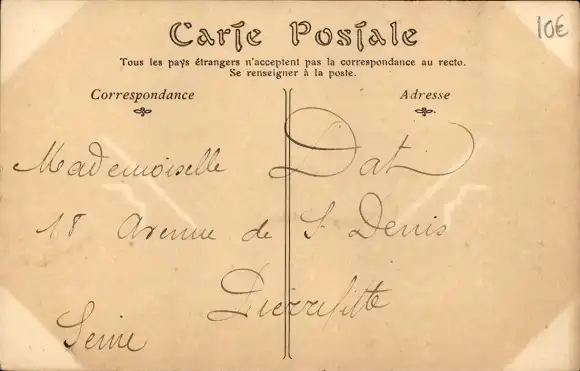 10€
Carte Postale
Tous les pays étrangers n'acceptent pas la correspondance au recto.
Se renseigner à la poste.
Correspondance
Adresse
Mademoiselle Dat
18 Avenue de St Denis
Pierrefitte
Seine